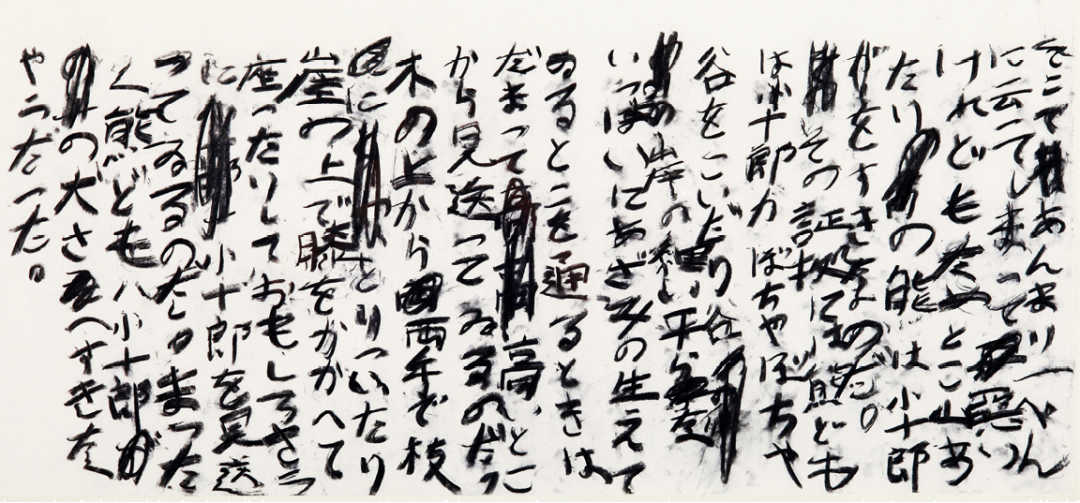 そこであんまり一ぺん
に云つてしまつて悪い
けれどもなめとこ山あ
たりの熊は小十郎
がをすきなのだ。
その証拠には熊ども
は小十郎がぼちやぼちや
谷をこいだり谷
の岸の細い平らな
いつぱいにあざみの生えて
ゐるとこを通るときは
だまつて高いとこ
から見送つてゐるのだつ
木の上から両手で枝
にとりついたり
崖の上で膝をかかへて
座つたりしておもしろさう
に小十郎を見送
つてゐるのだ。まつた
く熊どもハ小十郎が
の犬さへすきな
やうだつた。